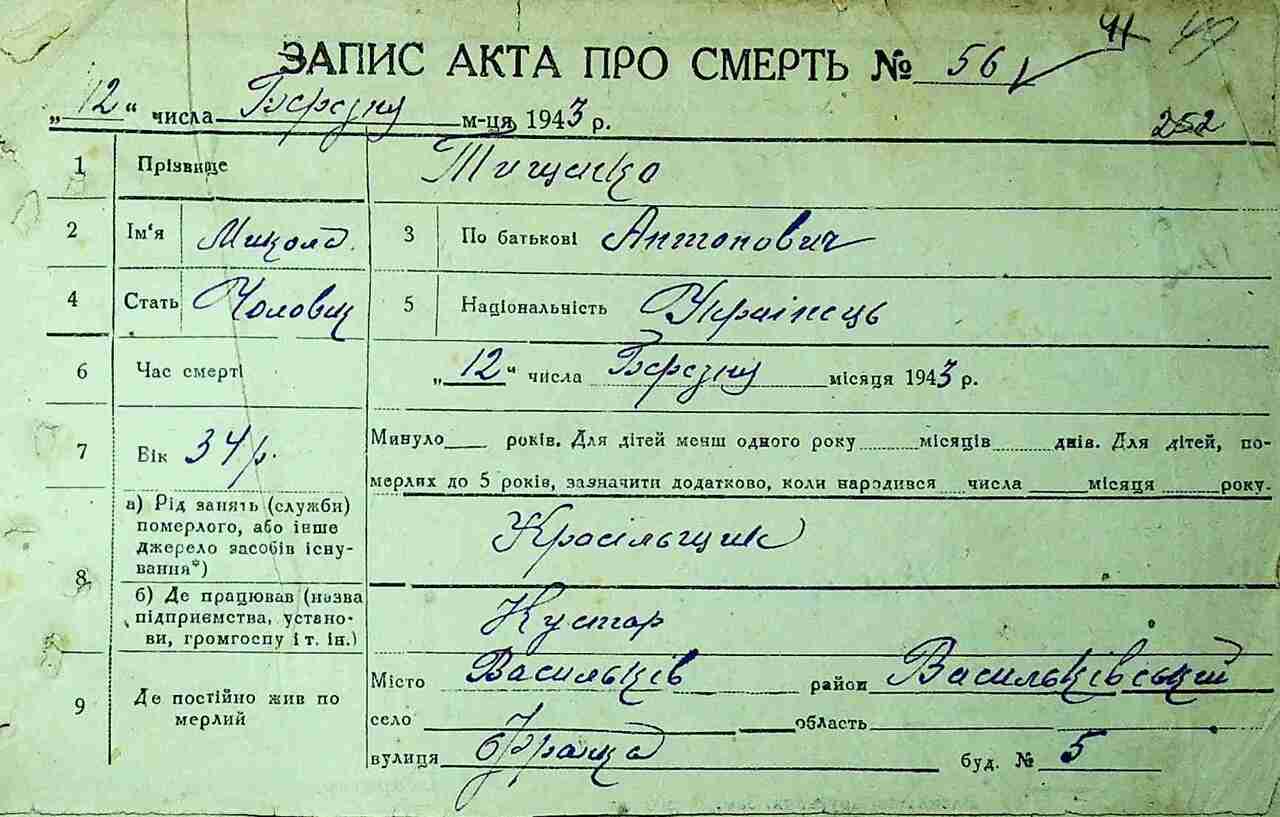 41 49
ЗАПИС АКТА ПРО СМЕРТЬ № 56
„12" числа Березня м-ця 1943 р.
252
1 Прізвище Тищенко
2 Ім'я Микола 3 По батькові Антонович
4 Стать Чоловік 5 Національність Українець
6 Час смерті „12" числа Березня місяця 1943 р.
7 Вік 34 р. Минуло____ років. Для дітей менш одного року______місяців______днів. Для дітей, по-
мерлих до 5 років, зазначити додатково, коли народився___числа_____місяця______року.
8 а) Рід занять (служби)
померлого, або інше
джерело засобів існу-
вання*) Красільщик
б) Де працював (назва
підприємства, устано-
ви, громгоспу і т. ін.) Кустар
9 Де постійно жив по
мерлий
Місто Васильків район Васильківський
село область
вулиця Франка буд. № 5